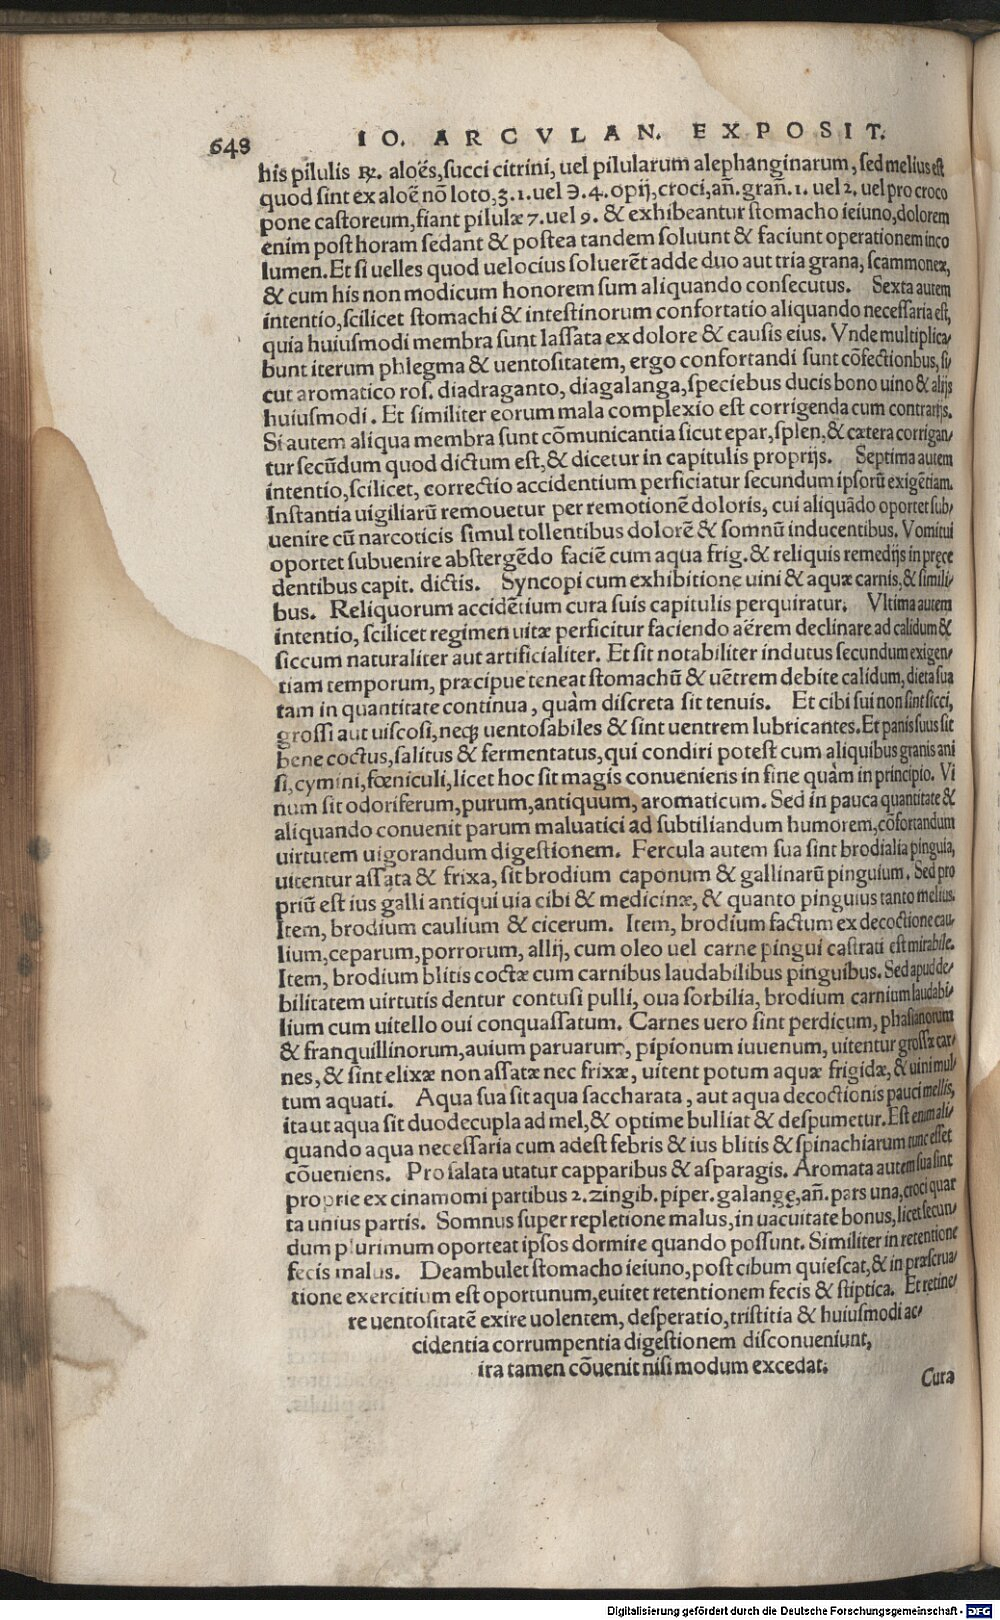 648 IO. ARCVLAN. EXPOSIT.
his pilulis ℞. aloës, succi citrini, uel pilularum alephanginarum, sed melius est
quod sint ex aloë nõ loto, ʒ. 1. uel ℈. 4. opij, croci, an̄. gran̄. 1. uel 2. uel pro croco
pone castoreum, fiant pilulæ 7. uel 9. & exhibeantur stomacho ieiuno, dolorem
enim post horam sedant & postea tandem soluunt & faciunt operationem inco
lumen. Et si uelles quod uelocius soluerẽt adde duo aut tria grana, scammoneæ,
& cum his non modicum honorem sum aliquando consecutus. Sexta autem
intentio, scilicet stomachi & intestinorum confortatio aliquando necessaria est,
quia huiusmodi membra sunt lassata ex dolore & causis eius. Vnde multiplica-
bunt iterum phlegma & uentositatem, ergo confortandi sunt cõfectionbus, si-
cut aromatico ros. diadraganto, diagalanga, speciebus ducis bono uino & alijs
huiusmodi. Et similiter eorum mala complexio est corrigenda cum contrarijs.
Si autem aliqua membra sunt cõmunicantia sicut epar, splen, & cætera corrigan-
tur secũdum quod dictum est, & dicetur in capitulis proprijs. Septima autem
intentio, scilicet, correctio accidentium perficiatur secundum ipsorũ exigẽtiam.
Instantia uigiliarũ remouetur per remotionẽ doloris, cui aliquãdo oportet sub-
uenire cũ narcoticis simul tollentibus dolorẽ & somnũ inducentibus. Vomitui
oportet subuenire abstergẽdo faciẽ cum aqua frig. & reliquis remedijs in pręce
dentibus capit. dictis. Syncopi cum exhibitione uini & aquæ carnis, & simili-
bus. Reliquorum accidẽtium cura suis capitulis perquiratur. Vltima autem
intentio, scilicet regimen uitæ perficitur faciendo aërem declinare ad calidum &
siccum naturaliter aut artificialiter. Et sit notabiliter indutus secundum exigen-
tiam temporum, præcipue teneat stomachũ & uẽtrem debite calidum, dieta sua
tam in quantitate continua, quàm discreta sit tenuis. Et cibi sui non sint sicci,
grossi aut uiscosi, neq; uentosabiles & sint uentrem lubricantes. Et panis suus sit
bene coctus, salitus & fermentatus, qui condiri potest cum aliquibus granis ani
si, cymini, fœniculi, licet hoc sit magis conueniens in fine quàm in principio. Vi
num sit odoriferum, purum, antiquum, aromaticum. Sed in pauca quantitate &
aliquando conuenit parum maluatici ad subtiliandum humorem, cõfortandum
uirtutem uigorandum digestionem. Fercula autem sua sint brodialia pinguia,
uitentur assata & frixa, sit brodium caponum & gallinarũ pinguium. Sed pro
priũ est ius galli antiqui uia cibi & medicinæ, & quanto pinguius tanto melius.
Item, brodium caulium & cicerum. Item, brodium factum ex decoctione cau-
lium, ceparum, porrorum, allij, cum oleo uel carne pingui castrati est mirabile.
Item, brodium blitis coctæ cum carnibus laudabilibus pinguibus. Sed apud de-
bilitatem uirtutis dentur contusi pulli, oua sorbilia, brodium carnium laudabi-
lium cum uitello oui conquassatum. Carnes uero sint perdicum, phasianorum
& franquillinorum, auium paruarum, pipionum iuuenum, uitentur grossæ car-
nes, & sint elixæ non assatæ nec frixæ, uitent potum aquæ frigidæ, & uini mul-
tum aquati. Aqua sua sit aqua saccharata, aut aqua decoctionis pauci mellis,
ita ut aqua sit duodecupla ad mel, & optime bulliat & despumetur. Est enim ali-
quando aqua necessaria cum adest febris & ius blitis & spinachiarum tunc esset
cõueniens. Pro salata utatur capparibus & asparagis. Aromata autem sua sint
proprie ex cinamomi partibus 2. zingib. piper. galangę, an̄. pars una, croci quar
ta unius partis. Somnus super repletione malus, in uacuitate bonus, licet secun-
dum plurimum oporteat ipsos dormire quando possunt. Similiter in retentione
fecis malus. Deambulet stomacho ieiuno, post cibum quiescat, & in præserua-
tione exercitium est oportunum, euitet retentionem fecis & stiptica. Et retine-
re uentositatẽ exire uolentem, desperatio, tristitia & huiusmodi ac-
cidentia corrumpentia digestionem disconueniunt,
ira tamen cõuenit nisi modum excedat.
Cura
Digitalisierung gefördert durch die Deutsche Forschungsgemeinschaft - DFG